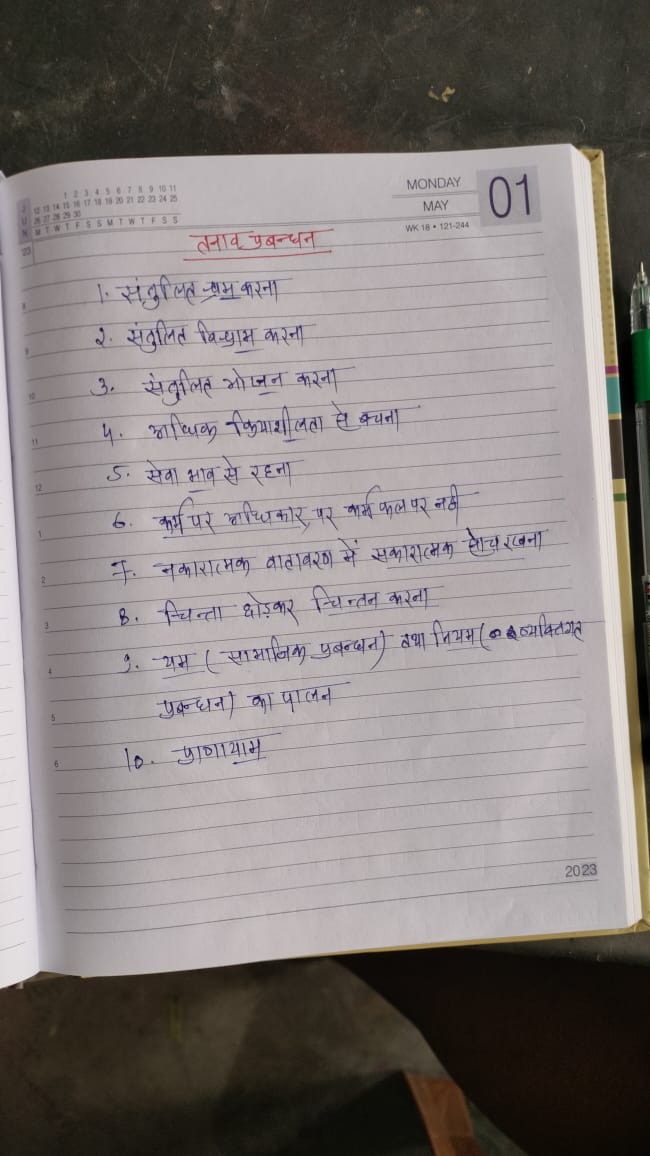 1 2 3 4 5 6 7 8 9 10 11
12 13 14 15 16 17 18 19 20 21 22 23 24 25
26 27 28 29 30
M T W T F S S M T W T F S S
MONDAY
MAY
WK 18 • 121-244
01
तनाव प्रबन्धन
1. संतुलित श्रम करना
2. संतुलित विश्राम करना
3. संतुलित भोजन करना
4. अधिक क्रियाशीलता से बचना
5. सेवा भाव से रहना
6. कर्म पर अधिकार, पर कर्म फल पर नही
7. नकारात्मक वातावरण में सकारात्मक सोच रखना
8. चिन्ता छोड़कर चिन्तन करना
9. यम (सामाजिक प्रबन्धन) तथा नियम (व्यक्तिगत
प्रबन्धन) का पालन
10. प्राणायाम
2023